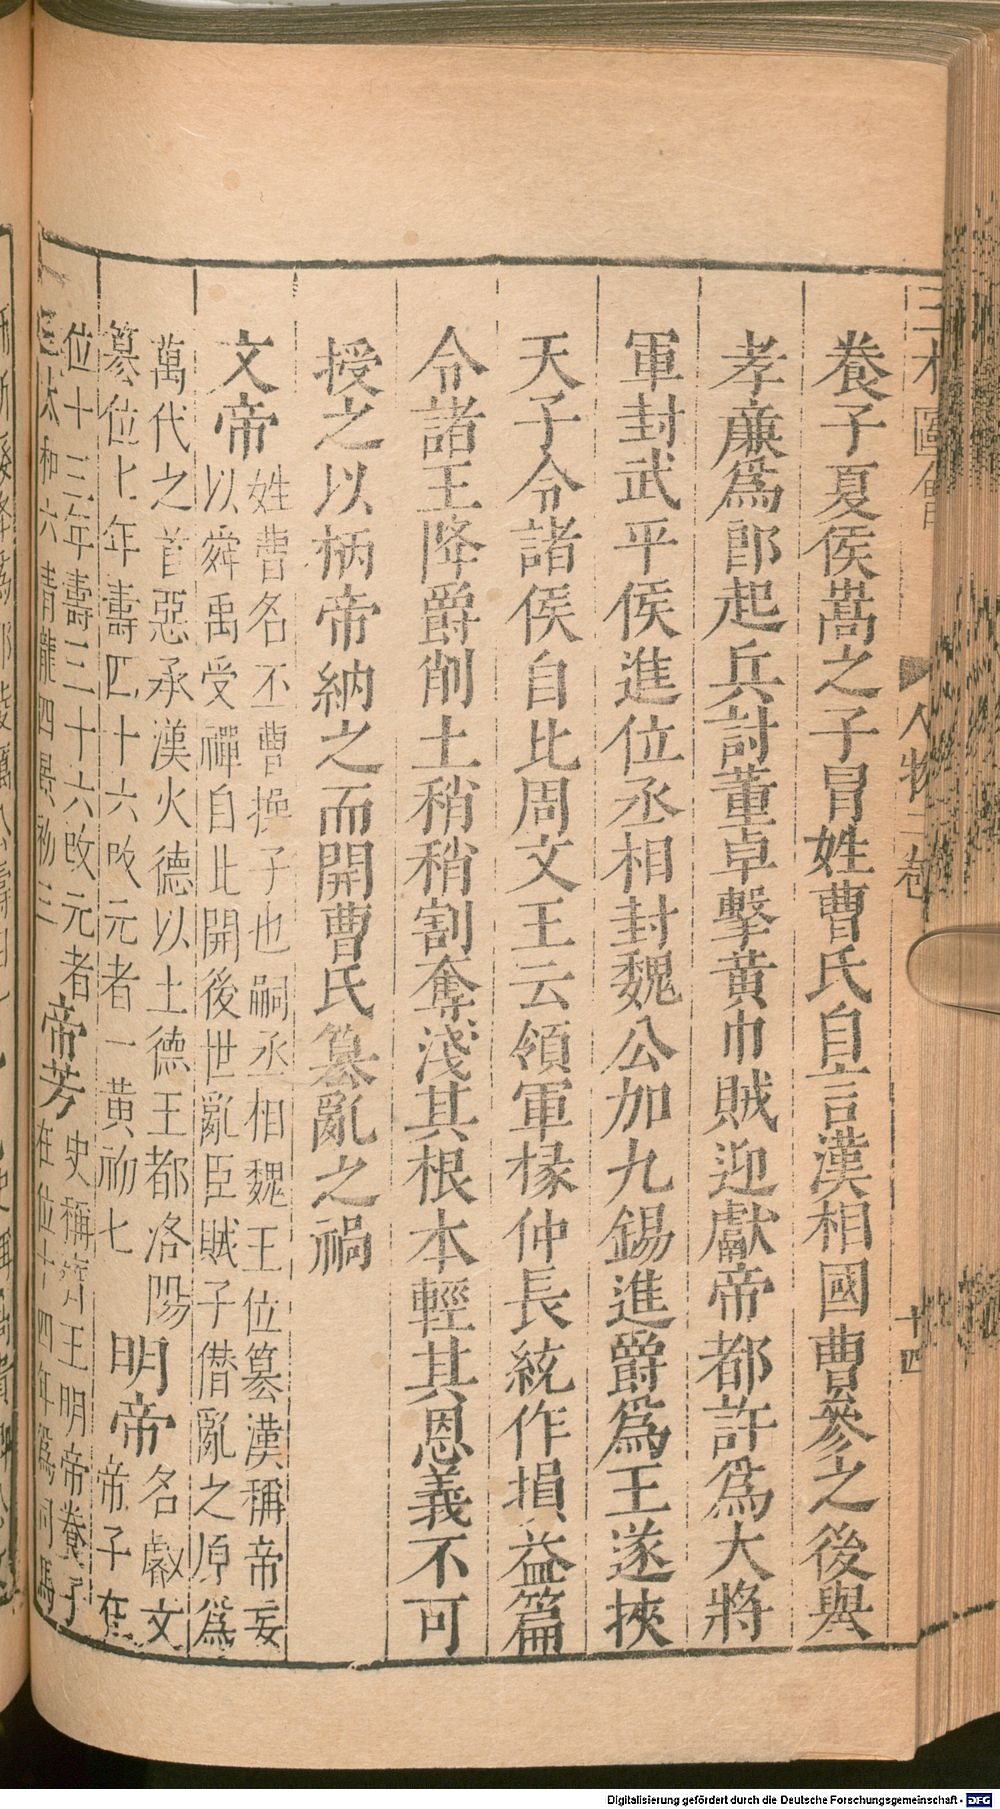 人物二卷
十四
養子夏侯嵩之子冒姓曹氏自言漢相國曹參之後舉
孝廉爲郎起兵討董卓擊黃巾賊迎獻帝都許爲大將
軍封武平侯進位丞相封魏公加九錫進爵爲王遂挾
天子令諸侯自比周文王云領軍椽仲長統作損益篇
令諸王降爵削土稍稍割奪淺其根本輕其恩義不可
授之以柄帝納之而開曹氏篡亂之禍
文帝
姓曹名丕曹操子也嗣丞相魏王位篡漢稱帝妄
以舜禹受禪自此開後世亂臣賊子僣亂之原爲
萬代之首惡承漢火德以土德王都洛陽
篡位七年壽四十六改元者一黃初七
明帝
名叡文
帝子在
位十三年壽三十六改元者
太和六青龍四景初三
帝芳
史稱齊王明帝養子
在位十四年爲司馬
Digitalisierung gefördert durch die Deutsche Forschungsgemeinschaft - DFG